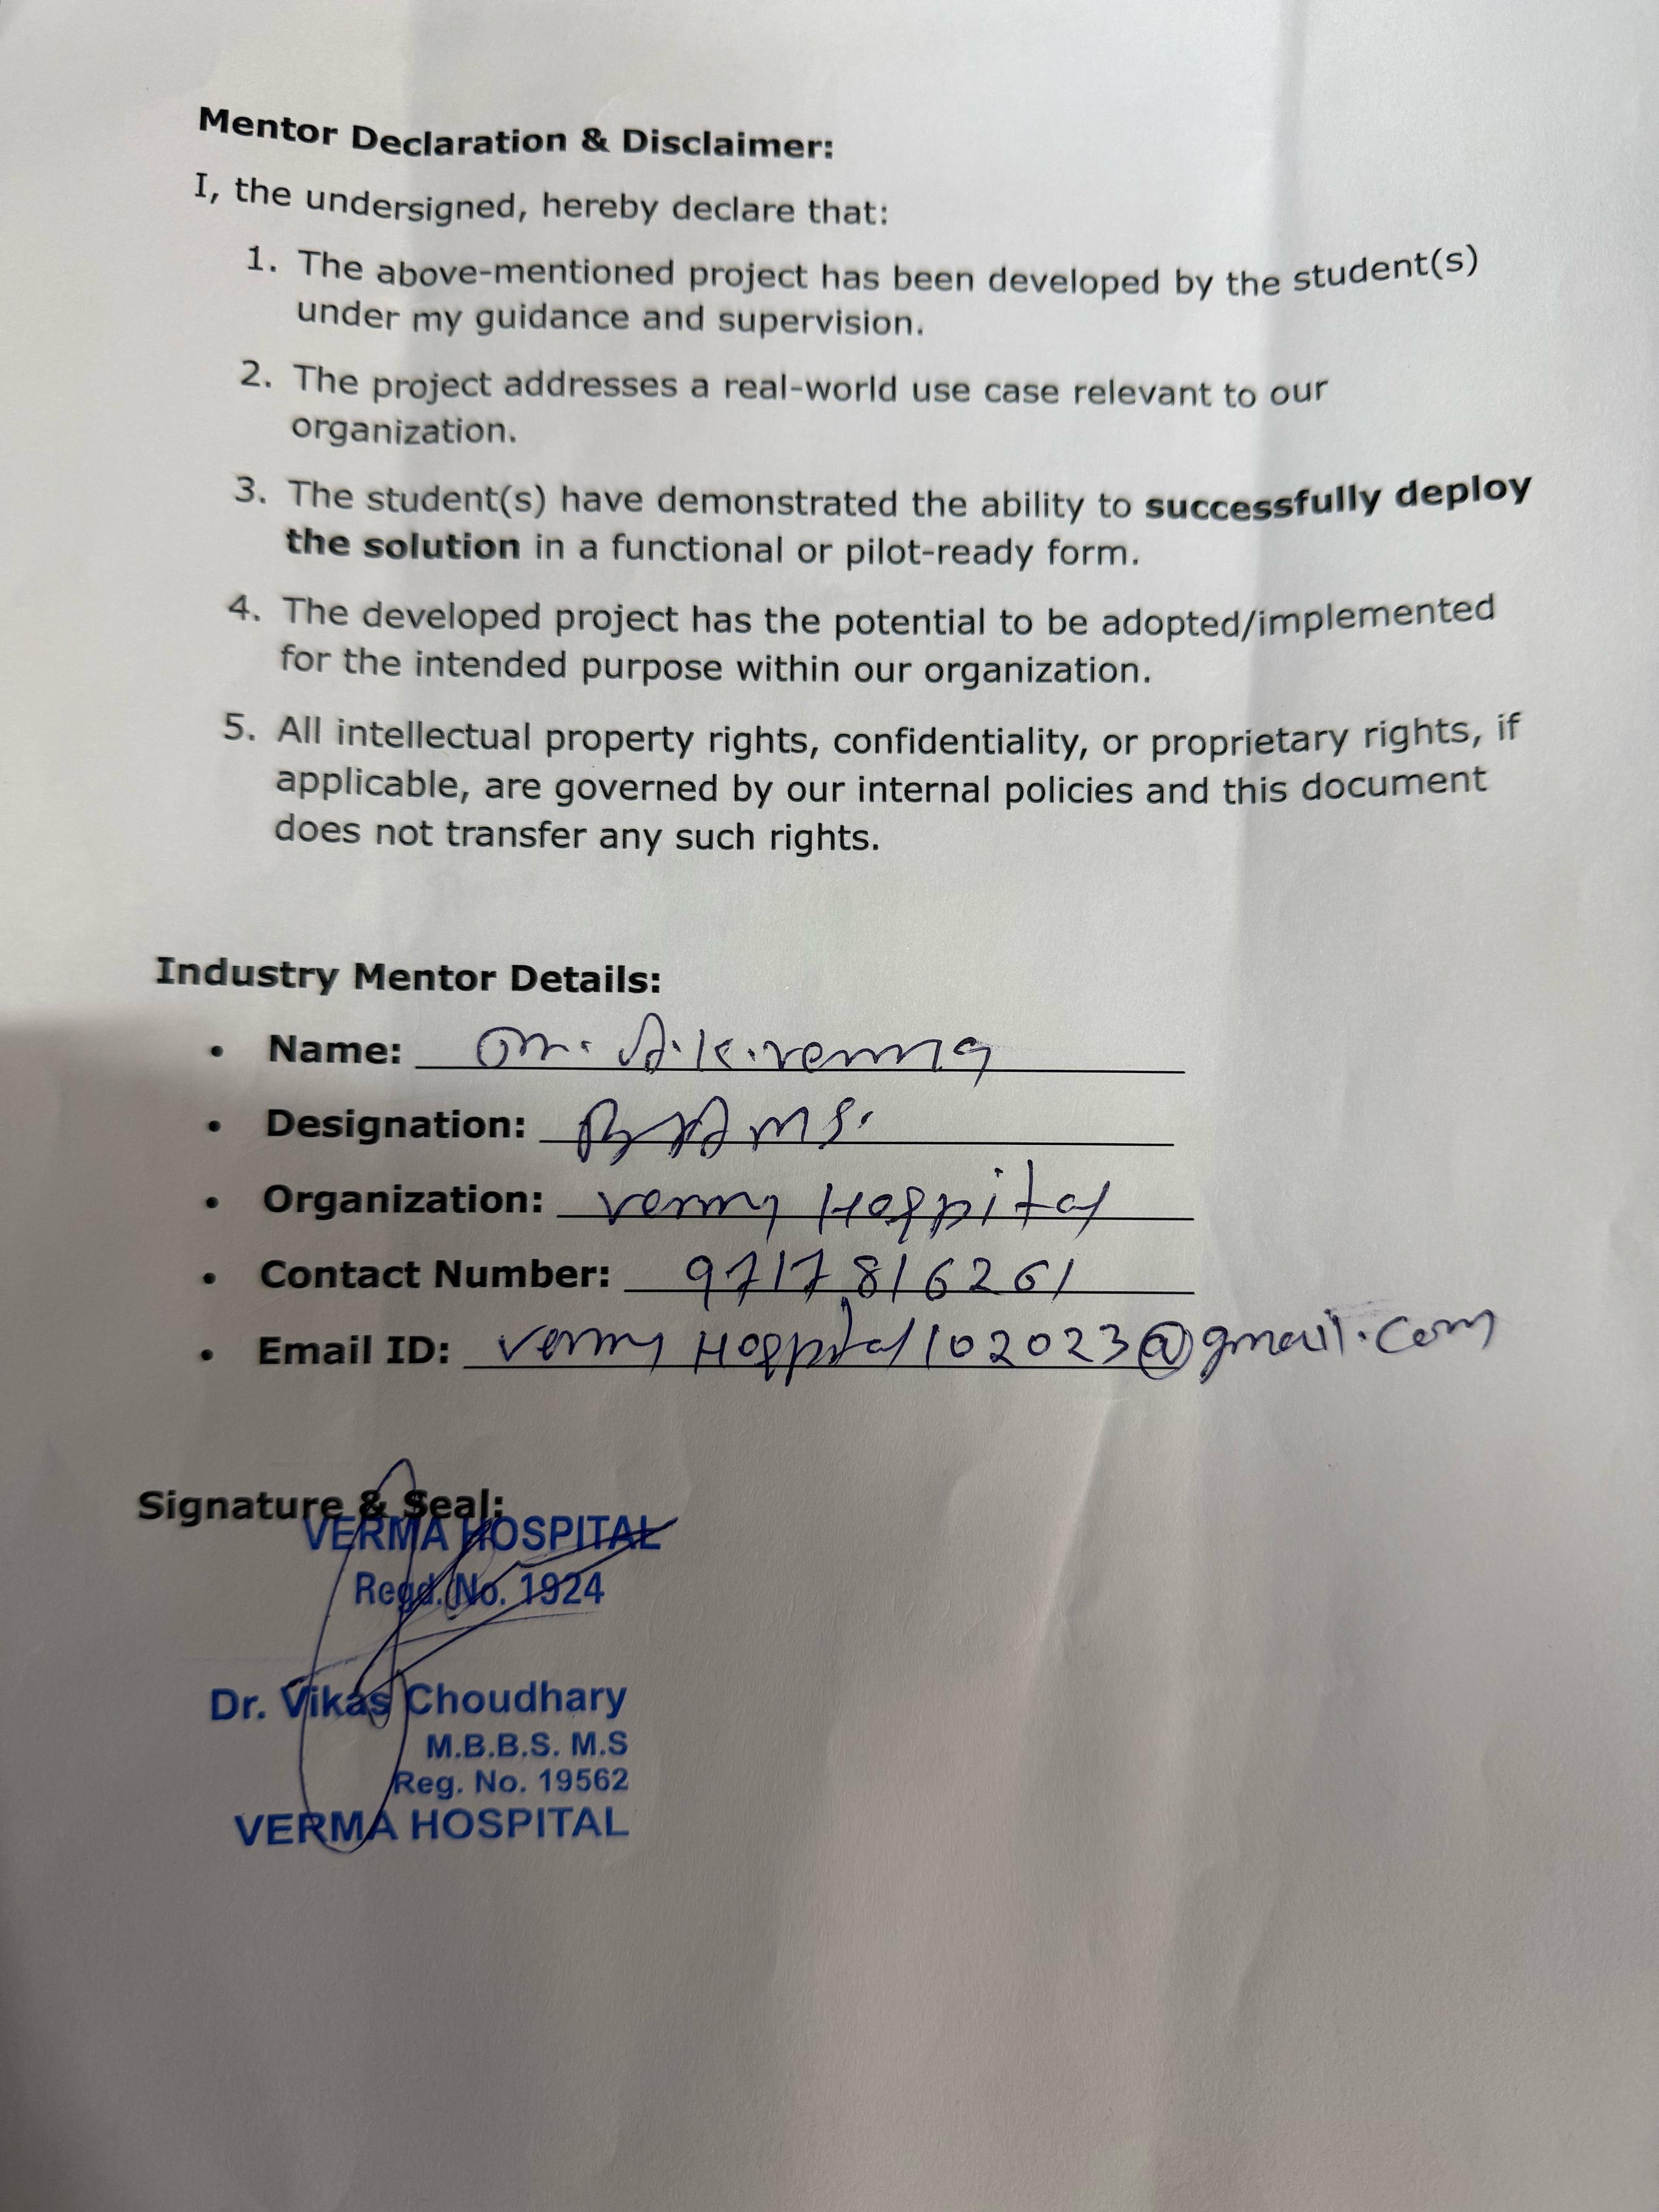 Mentor Declaration & Disclaimer:
I, the undersigned, hereby declare that:
1. The above-mentioned project has been developed by the student(s)
under my guidance and supervision.
2. The project addresses a real-world use case relevant to our
organization.
3. The student(s) have demonstrated the ability to successfully deploy
the solution in a functional or pilot-ready form.
4. The developed project has the potential to be adopted/implemented
for the intended purpose within our organization.
5. All intellectual property rights, confidentiality, or proprietary rights, if
applicable, are governed by our internal policies and this document
does not transfer any such rights.
Industry Mentor Details:
• Name: Dr. A.K. Verma
• Designation: BAMS.
• Organization: Verma Hospital
• Contact Number: 9717816261
• Email ID: Verma Hospital102023@gmail.com
Signature & Seal:
VERMA HOSPITAL
Regd. No. 1924
Dr. Vikas Choudhary
M.B.B.S. M.S
Reg. No. 19562
VERMA HOSPITAL